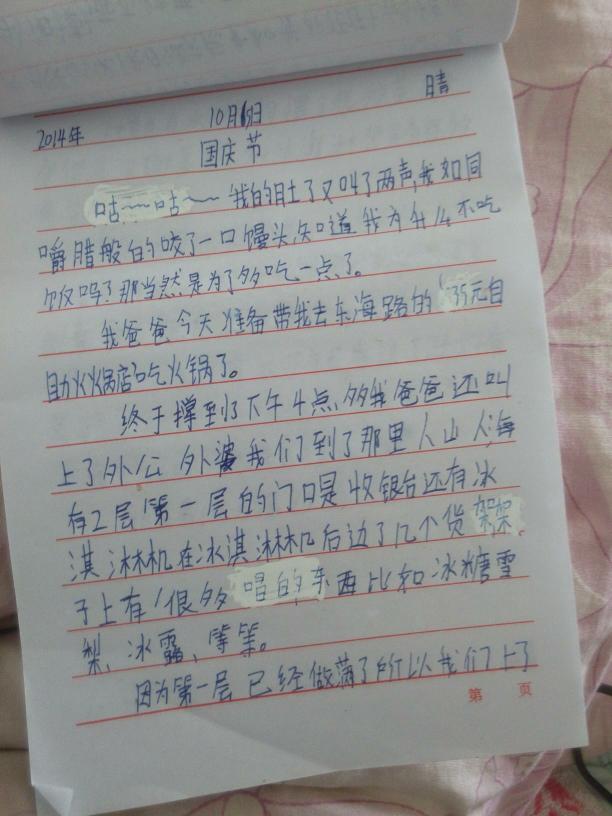 2014年 10月6日 晴
国庆节
咕~~咕~~我的肚子又叫了两声,我如同
嚼腊般的咬了一口馒头,知道我为什么不吃
饭吗?那当然是为了多吃一点了。
我爸爸今天准备带我去东海路的35元自
助火火锅店吃火锅了。
终于撑到了下午4点,多我爸爸还叫
上了外公 外婆我们到了那里人山人海
有2层第一层的门口是收银台还有冰
淇淋机在冰淇淋机后边了几个货架架
子上有很多喝的东西比如冰糖雪
梨、冰露、等等。
因为第一层已经做满了所以我们上了
第 页